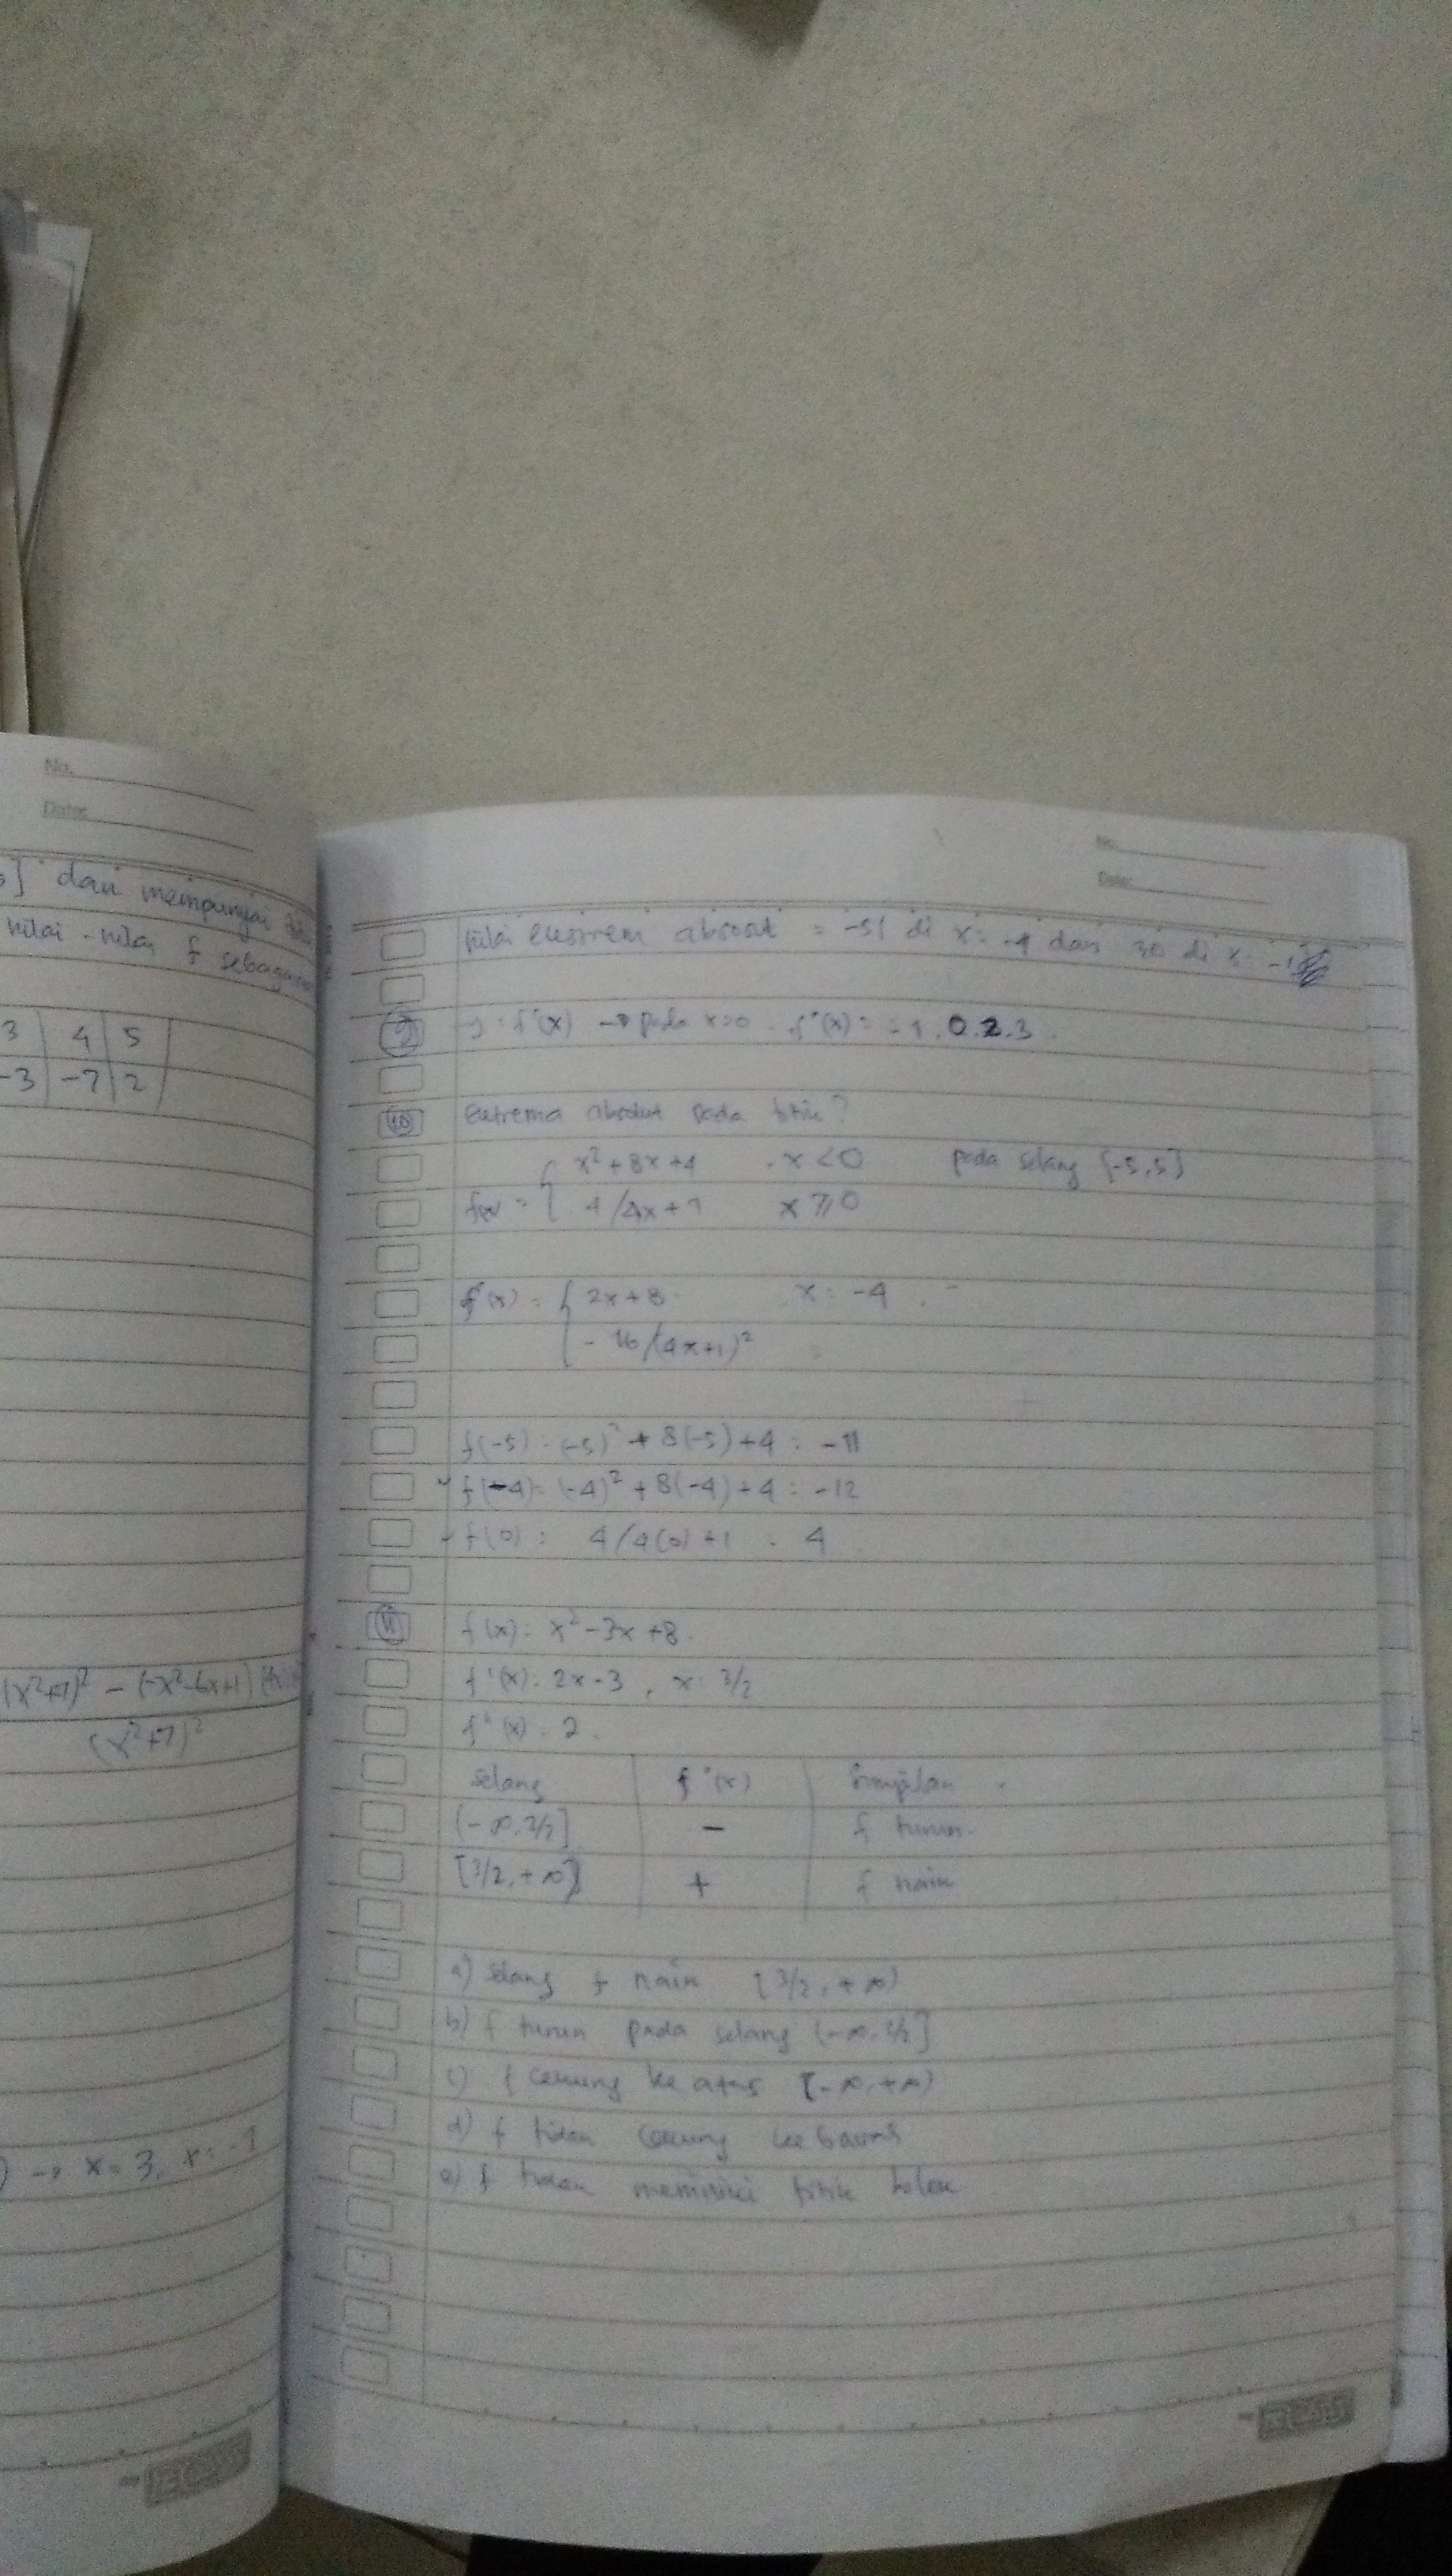 No.
Date:
dan mempunyai
nilai - nilai f sebagai
3 4 5
-3 -7 2
(x²+7)² - (-x²-6x+1)
(x²+7)²
→ x = 3, x = -1
No.
Date:
Nilai ekstrem absolut = -51 di x = -4 dan 30 di x = -1
9 y = f'(x) → pada x=0 . f'(x) = -1, 0, 2, 3.
10 Extrema absolut pada titik?
x² + 8x + 4 , x < 0 pada selang [-5,5]
f(x) = { 4/4x+1 x ≥ 0
f'(x) = { 2x + 8 , x = -4
- 16/(4x+1)²
f(-5) = (-5)² + 8(-5) + 4 = -11
f(-4) = (-4)² + 8(-4) + 4 = -12
f(0) = 4/4(0) + 1 = 4
11 f(x) = x² - 3x + 8.
f'(x) = 2x - 3 , x = 3/2
f''(x) = 2.
selang f'(x) Simpulan
(-∞, 3/2] - f turun
[3/2, +∞) + f naik
a) selang f naik [3/2, +∞)
b) f turun pada selang (-∞, 3/2]
c) f cekung ke atas (-∞, +∞)
d) f tidak cekung ke bawah
e) f tidak memiliki titik belok